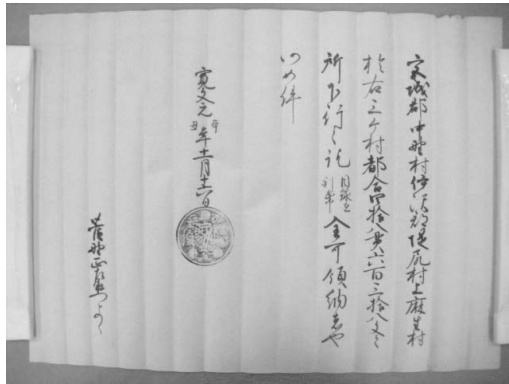 宮城郡中野村伊沢郡堤尻村上麻生村
於右三ケ村都合四拾八貫六百三拾八文之
所下行之訖 目録在 別紙 全可領納者也
仍如件
寛文元 辛丑 年十一月十六日